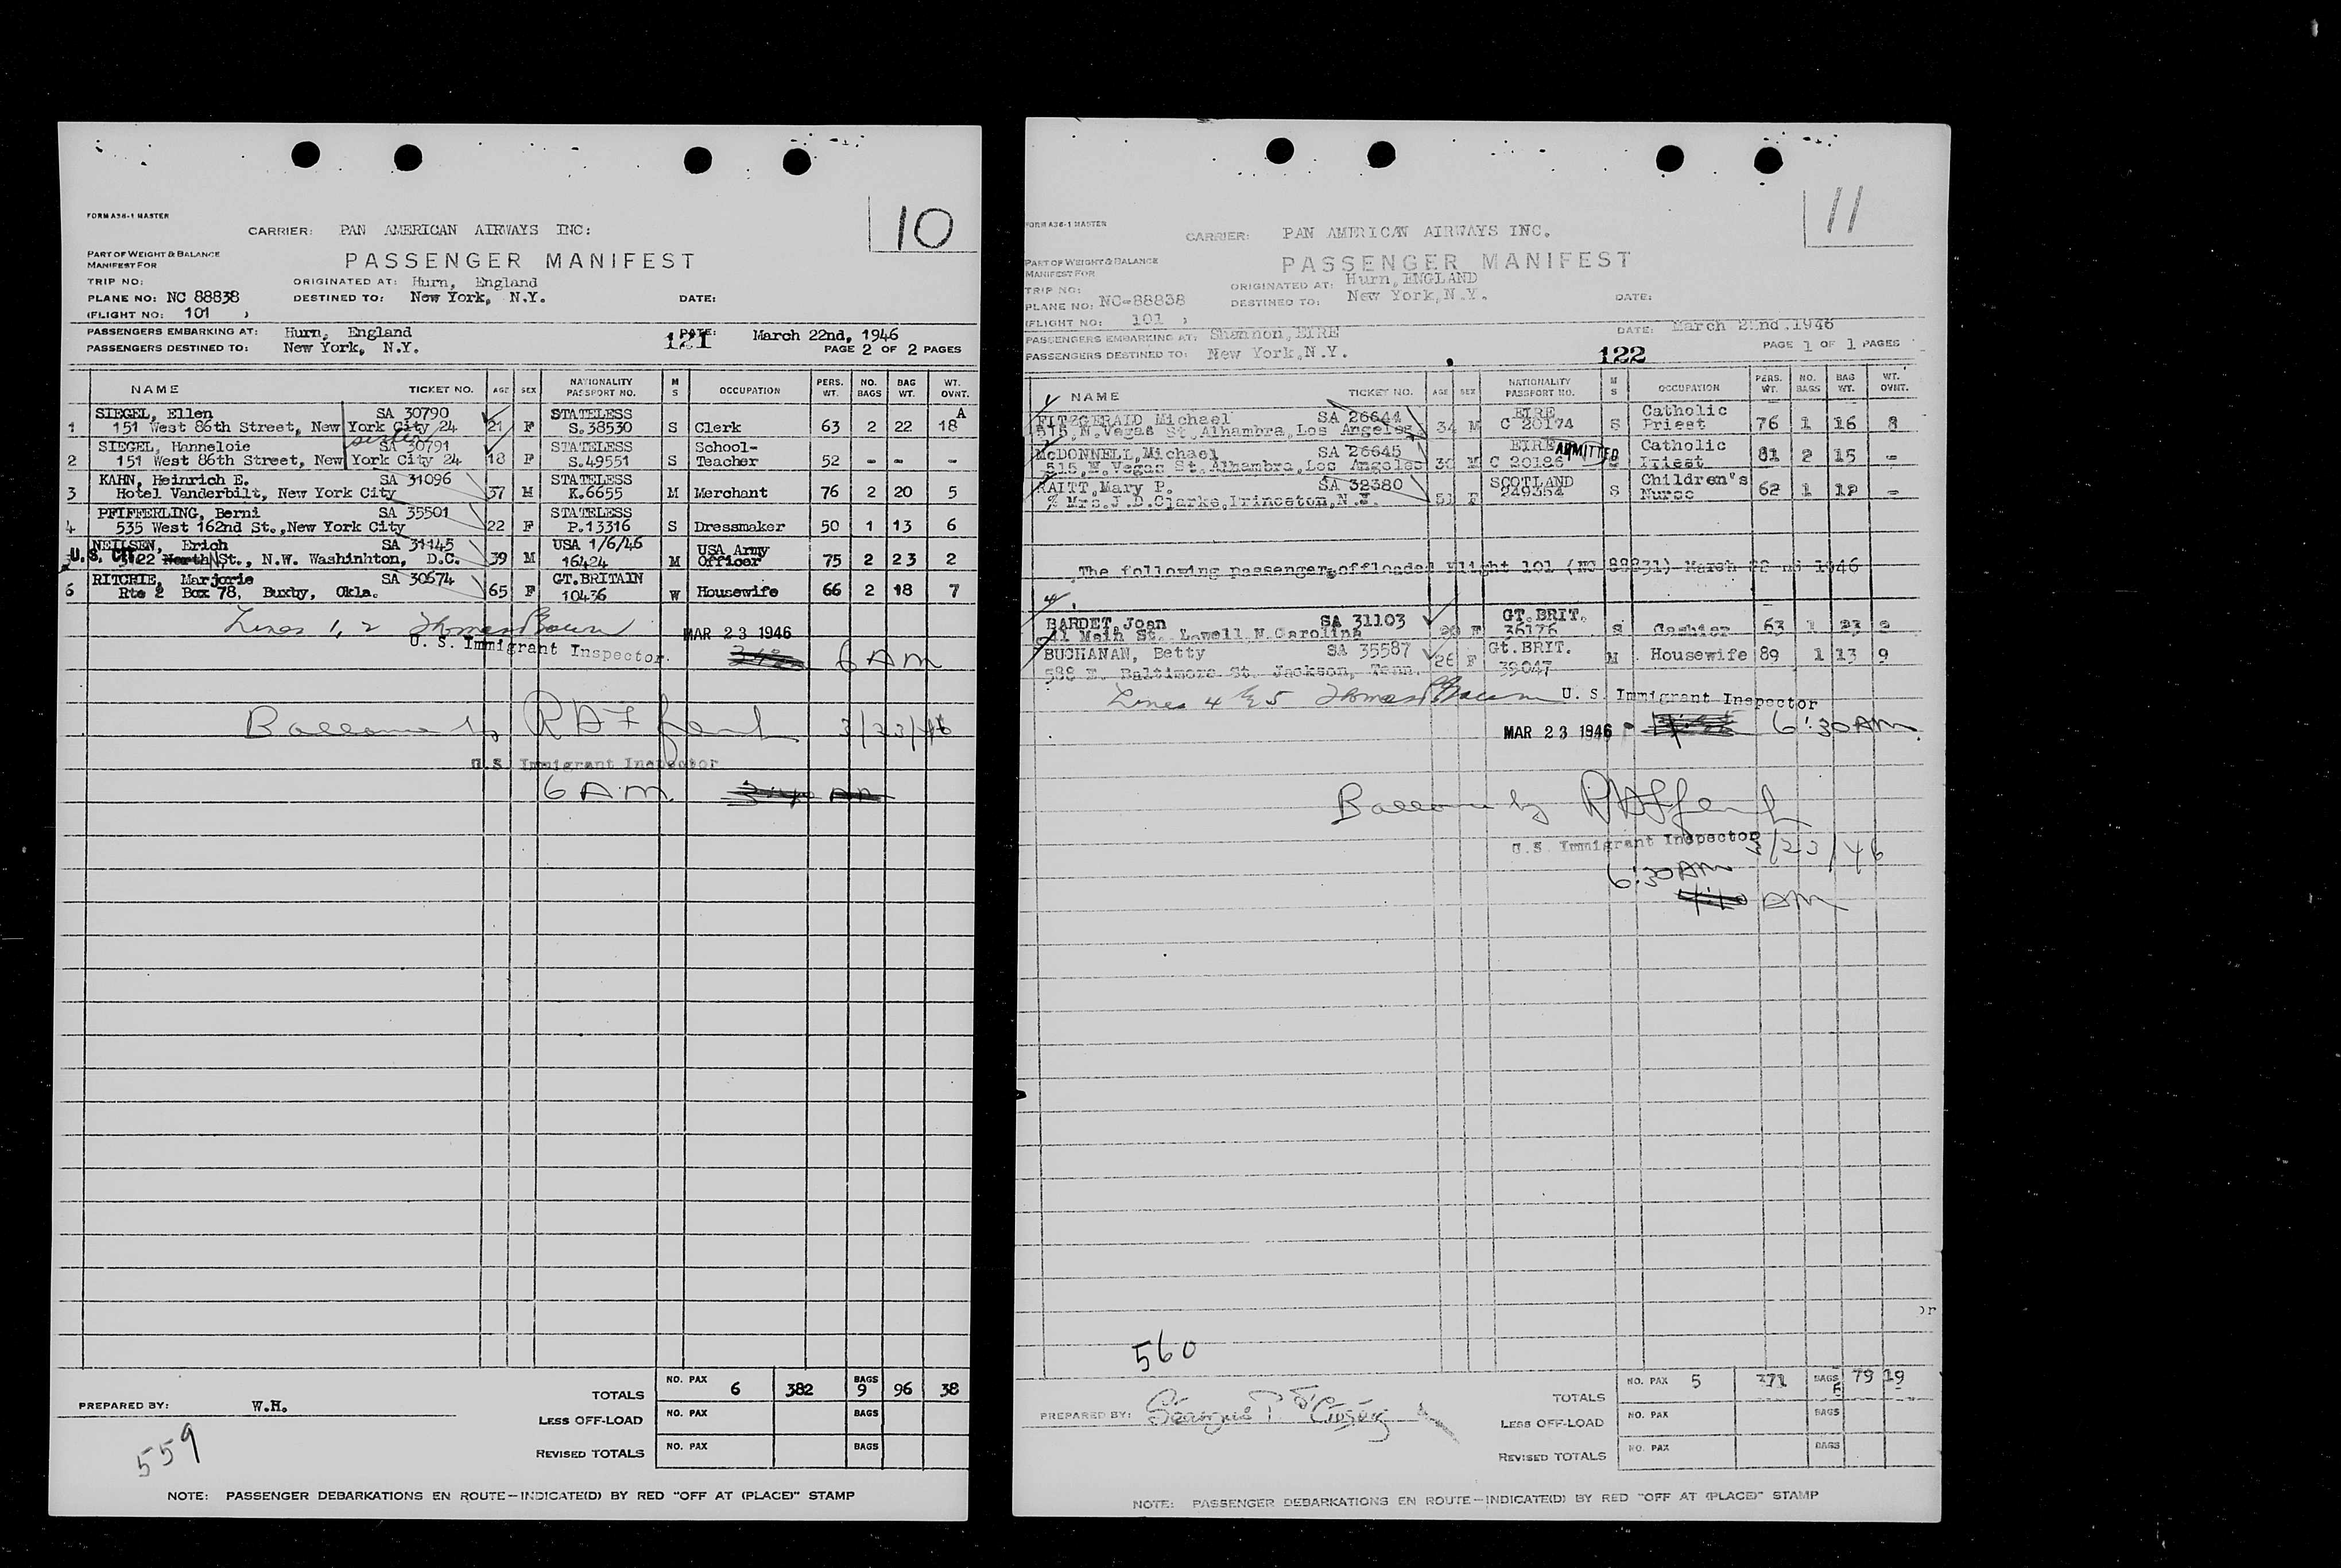 FORM A36-1 MASTER
10
CARRIER: PAN AMERICAN AIRWAYS INC:
PART OF WEIGHT & BALANCE
MANIFEST FOR
PASSENGER MANIFEST
TRIP NO: ORIGINATED AT: Hurn, England
PLANE NO: NC 88838 DESTINED TO: New York, N.Y. DATE:
(FLIGHT NO: 101 )
PASSENGERS EMBARKING AT: Hurn, England 121 DATE: March 22nd, 1946
PASSENGERS DESTINED TO: New York, N.Y. PAGE 2 OF 2 PAGES
NAME TICKET NO. AGE SEX NATIONALITY PASSPORT NO. M S OCCUPATION PERS. WT. NO. BAGS BAG WT. WT. OVNT.
SIEGEL, Ellen SA 30790 STATELESS A
1 151 West 86th Street, New York City 24 21 F S.38530 S Clerk 63 2 22 18
sister
SIEGEL, Hanneloie SA 30791 STATELESS School-
2 151 West 86th Street, New York City 24 18 F S.49551 S Teacher 52 - - -
KAHN, Heinrich E. SA 31096 STATELESS
3 Hotel Vanderbilt, New York City 37 M K.6655 M Merchant 76 2 20 5
PFIFFERLING, Berni SA 35501 STATELESS
4 535 West 162nd St.,New York City 22 F P.13316 S Dressmaker 50 1 13 6
NEILSEN, Erich SA 31145 USA 1/6/46 USA Army
U.S. CIT. 3122 North N St., N.W. Washinhton, D.C. 39 M 16424 M Officer 75 2 23 2
RITCHIE, Marjorie SA 30674 GT.BRITAIN
6 Rte 2 Box 78, Buxby, Okla. 65 F 10436 W Housewife 66 2 18 7
Lines 1, 2 MAR 23 1946
U.S. Immigrant Inspector. 6 AM
Balance by 3/23/46
U.S. Immigrant Inspector
6 A.M.
TOTALS NO. PAX 6 382 BAGS 9 96 38
PREPARED BY: W.H.
LESS OFF-LOAD NO. PAX BAGS
REVISED TOTALS NO. PAX BAGS
559
NOTE: PASSENGER DEBARKATIONS EN ROUTE—INDICATE(D) BY RED "OFF AT (PLACE)" STAMP
FORM A36-1 MASTER
11
CARRIER: PAN AMERICAN AIRWAYS INC.
PART OF WEIGHT & BALANCE
MANIFEST FOR
PASSENGER MANIFEST
TRIP NO: ORIGINATED AT: Hurn,ENGLAND
PLANE NO: NC-88838 DESTINED TO: New York,N.Y. DATE:
(FLIGHT NO: 101 )
PASSENGERS EMBARKING AT: Shannon,EIRE DATE: March 22nd.1946
PASSENGERS DESTINED TO: New York,N.Y. 122 PAGE 1 OF 1 PAGES
NAME TICKET NO. AGE SEX NATIONALITY PASSPORT NO. M S OCCUPATION PERS. WT. NO. BAGS BAG WT. WT. OVNT.
FITZGERALD Michael SA 26644 EIRE Catholic
515,N.Vegas St,Alhambra,Los Angeles 34 M C 20174 S Priest 76 1 16 8
McDONNELL,Michael SA 26645 EIRE ADMITTED Catholic
515,N.Vegas St.Alhambra,Los Angeles 30 M C 20186 S Priest 81 2 15 -
RAITT,Mary P. SA 38380 SCOTLAND Children's
% Mrs.J.D.Clarke,Princeton,N.J. 51 F 249354 S Nurse 62 1 12 -
The following passengers offloaded Flight 101 (NC 88831) March 22 nd 1946
BARDET,Joan SA 31103 GT.BRIT.
41 Main St. Lowell N.Carolina 20 F 36176 S Cashier 63 1 23 2
BUCHANAN, Betty SA 35587 Gt.BRIT.
588 E. Baltimore St. Jackson, Tenn. 26 F 39047 M Housewife 89 1 13 9
Lines 4 & 5 U.S. Immigrant Inspector
MAR 23 1946 6:30 AM
Balance by
U.S. Immigrant Inspector 3/23/46
6:30 AM
AM
560
TOTALS NO. PAX 5 371 BAGS 6 79 19
PREPARED BY:
LESS OFF-LOAD NO. PAX BAGS
REVISED TOTALS NO. PAX BAGS
NOTE: PASSENGER DEBARKATIONS EN ROUTE—INDICATE(D) BY RED "OFF AT (PLACE)" STAMP